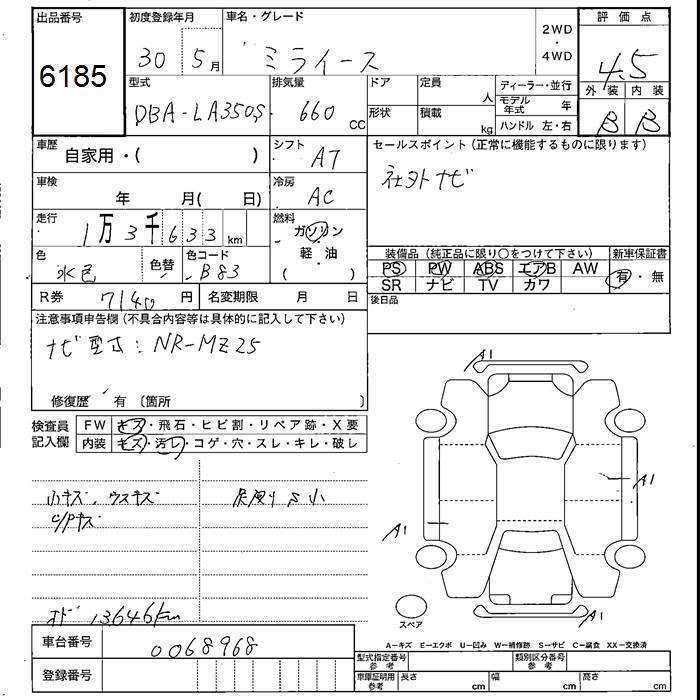 出品番号
6185
初度登録年月
30年 5月
車名・グレード
ミライース
2WD
・
4WD
評価点
4.5
外装 内装
B B
型式
DBA-LA350S
排気量
660 CC
ドア
定員
人
形状
積載
kg
ディーラー・並行
モデル年式 年
ハンドル 左・右
車歴
自家用・( )
シフト
AT
セールスポイント (正常に機能するものに限ります)
社外ナビ
車検
年 月( 日)
冷房
AC
走行
1万3千633km
燃料
ガソリン
軽・油
( )
色
水色
色替
色コード
B83
装備品 (純正品に限り○をつけて下さい)
新車保証書
PS PW ABS エアB AW
SR ナビ TV カワ
有・無
R券 7140円
名変期限 月 日
後日品
注意事項申告欄 (不具合内容等は具体的に記入して下さい)
ナビ型式:NR-MZ25
修復歴 有 〔箇所 〕
検査員記入欄
FW キズ・飛石・ヒビ割・リペア跡・X要
内装 キズ・汚レ・コゲ・穴・スレ・キレ・破レ
小キズ、ウスキズ
C/Pキズ
オド 13646km
A1
A1
A1
A1
スペア
A-キズ E-エクボ U-凹み W-補修跡 S-サビ C-腐食 XX-交換済
車台番号
0068968
登録番号
型式指定番号 参考
類別区分番号 参考
車庫証明用 参考
長さ cm
幅 cm
高さ cm